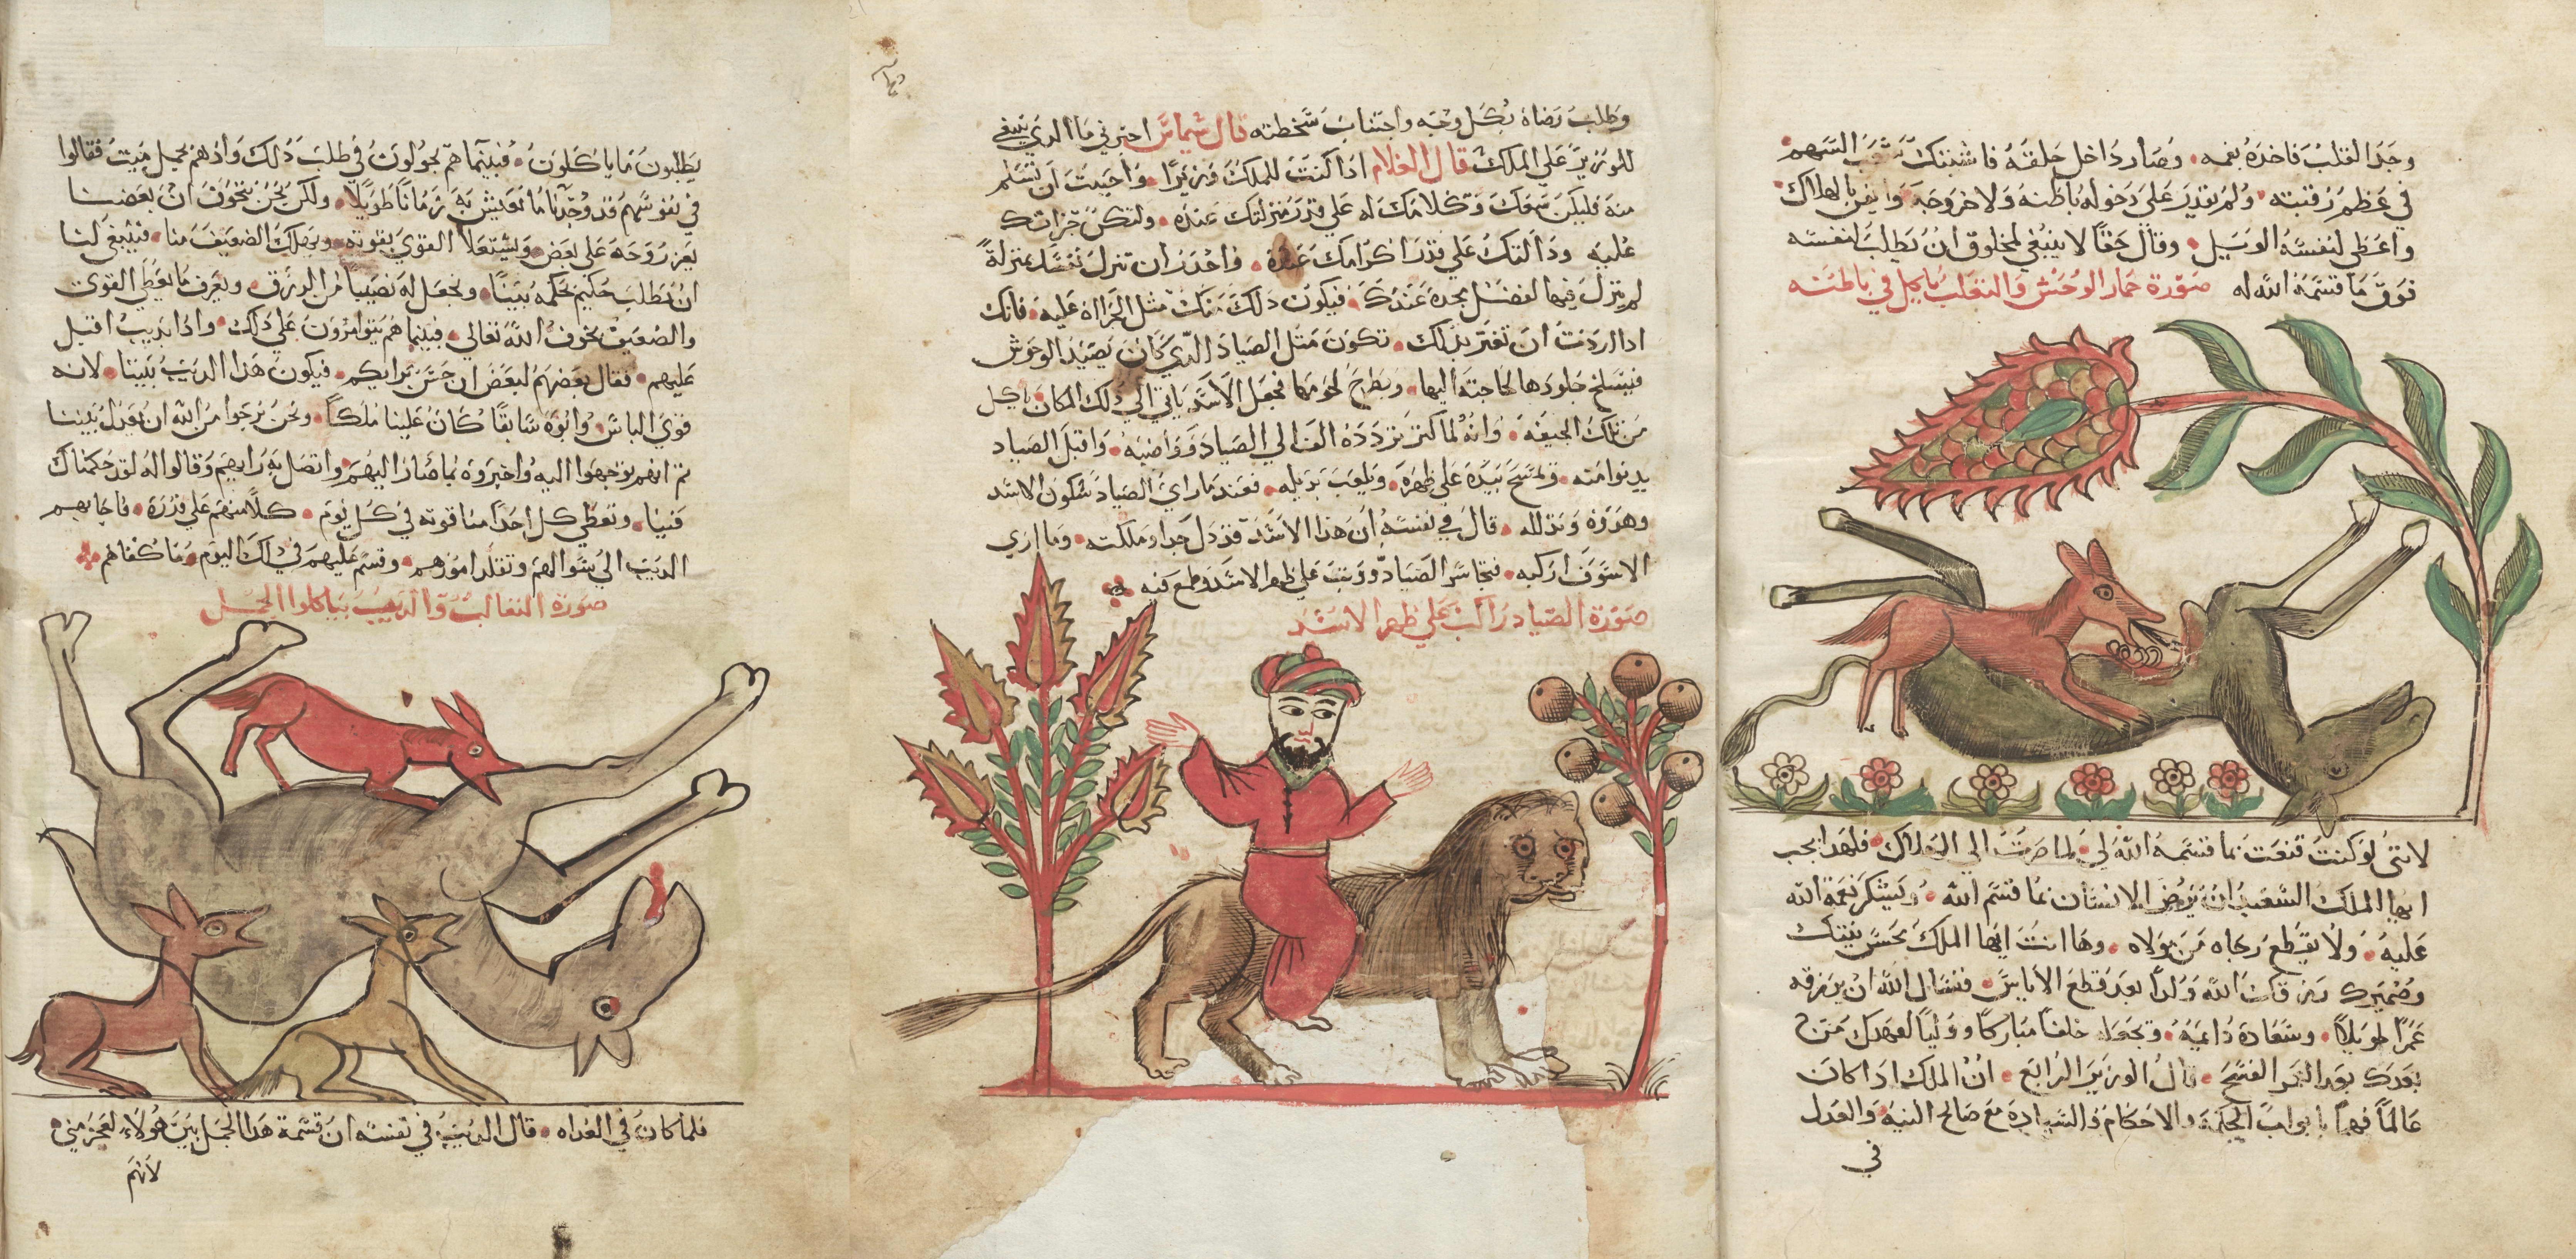 وجد القلب فاخده بفمه. وصار داخل حلقه فاشتبكت شعب السهم
في عظم رقبته. ولم يقدر علي دخوله باطنه ولا خروجه وايقن بالهلاك
واعطي لنفسه الويل. وقال حقا لا ينبغي لمخلوق ان يطلب لنفسه
فوق ما قسمه الله له صورة حمار الوحش والثعلب ياكل في باطنه
لانني لو كنت قنعت بما قسمه الله لي لما صرت الي الهلاك. فلهدا يجب
ايها الملك السعيد ان يرض الانسان بما قسم الله. ويشكر نعمة الله
عليه. ولا يقطع رجاه من مولاه. وها انت ايها الملك بحسن نيتك
وضميرك رزقك الله ولدا بعد قطع الاياس. فنسال الله ان يرزقه
عمرا طويلا. وسعادة دايمة. ويجعله خلفا مباركا ووليا لعهدك من
بعدك بعد العمر الفسيح. قال الوزير الرابع. ان الملك ادا كان
عالما فهما بابواب الحكمة والاحكام والسيادة مع صالح النية والعدل
في
وطلب رضاه بكل وجه واجتناب سخطته قال شماس اخبرني ما الدي ينبغي
للوزير علي الملك قال الغلام ادا كنت للملك وزيرا. واحببت ان تسلم
منه فليكن سمعك وكلامك له علي قدر منزلتك عنده. ولتكن جراتك
عليه ودالتك علي قدر اكرامك عنده. واحدر ان تنزل نفسك بمنزلة
لم ينزلك فيها لفضل يجده عندك. فيكون دلك منك مثل الجراه عليه. فانك
ادا اردت ان تغتر بدلك. تكون مثل الصياد الدي كان يصيد الوحوش
فيسلخ جلودها لحاجته اليها. ويطرح لحومها فجعل الاسد ياتي الي دلك المكان ياكل
من تلك الجيفة. وانه لما كثر تردده الف الي الصياد ووافيه. واقبل الصياد
يدنوا منه. ويمسح بيده علي ظهره. ويلعب بديله. فعندما راي الصياد سكون الاسد
وهدوه وتدلله. قال في نفسه ان هدا الاسد قد دل جدا وملكته. وما اري
الا سوف اركبه. فتجاسر الصياد ووثب علي ظهر الاسد وطمع فيه
صورة الصياد راكب علي ظهر الاسد
يطلبون ما ياكلون. فبينما هم يجولون في طلب دلك وادهم بجمل ميت فقالوا
في نفوسهم قد وجدنا ما نعيش به زمانا طويلا. ولكن نحن نتخوف ان بعضنا
يعز روحه علي بعض. ويستعلا القوي بقوته. ويهلك الضعيف منا. فينبغي لنا
ان نطلب حكيم يحكم بيننا. ونجعل له نصيبا من الرزق. ويعرف ما يعطي القوي
والضعيف بخوف الله تعالي. فبينما هم يتوامرون علي دلك. وادا بديب اقبل
عليهم. فقال بعضهم لبعض ان حسن برايكم. فيكون هدا الديب بيننا. لانه
قوي الباس. وابوه سابقا كان علينا ملكا. ونحن نرجوا من الله ان يعدل بيننا
ثم انهم توجهوا اليه واخبروه بما صار اليهم واتصل به رايهم وقالوا له لقد حكمناك
فينا. وتعطي كل احدا منا قوته في كل يوم. كلا منهم علي قدره. فاجابهم
الديب الي سوالهم وتقلد امورهم. وقسم عليهم في دلك اليوم ما كفاهم
صورة الثعالب والديب بياكلوا الجمل
فلما كان في الغداه. قال الديب في نفسه ان قسمة هدا الجمل بين هولاء لعجز مني.
لانهم